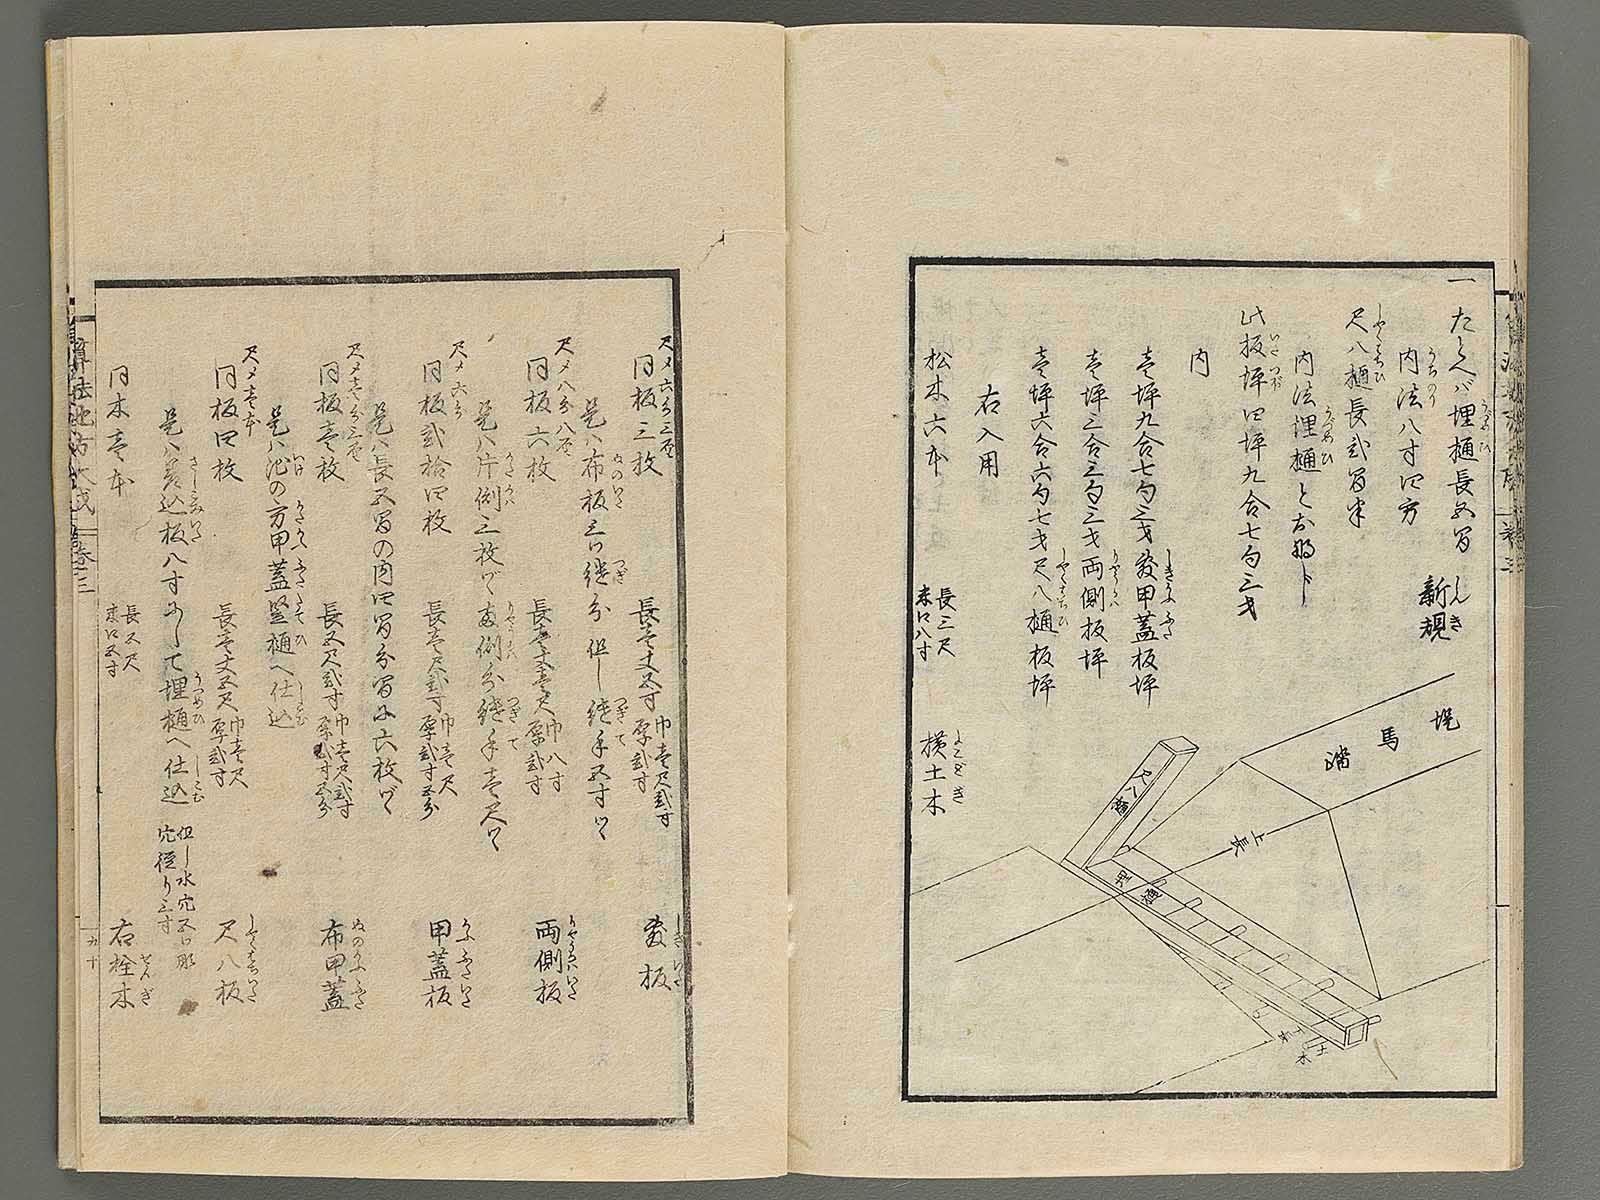 一 たとへバ埋樋長五間 新規
内法八寸四方
尺八樋長弐間半
内法埋樋と
此板坪四坪九合七勺三才
内
壱坪九合七勺三才 敷甲蓋板坪
壱坪三合三勺三才 両側板坪
壱坪六合六勺七才 尺八樋板坪
右入用
松木六本 長三尺 末口八寸 横土木
堤
馬
踏
上長
尺八樋
埋樋
下長
土木
尺〆六分三厘
同板三枚 長壱丈五寸 巾壱尺弐寸 厚弐寸 敷板
是ハ布板三口継分 但し継手五寸ツヽ
尺〆八分八厘
同板六枚 長壱丈壱尺 巾八寸 厚弐寸 両側板
是ハ片側三枚ヅヽ両側分継手壱尺ツヽ
尺〆六分
同板弐拾四枚 長壱尺弐寸 巾壱尺 厚弐寸五分 甲蓋板
是ハ長五間の内四間分間に六枚ヅヽ
尺〆壱分三厘
同板壱枚 長五尺弐寸 巾壱尺弐寸 厚弐寸五分 布甲蓋
是ハ池の方甲蓋竪樋へ仕込
尺〆壱本
同板四枚 長壱丈五尺 巾壱尺 厚弐寸 尺八板
是ハ差込板八寸にして埋樋へ仕込 但し水穴五口 穴径り三寸
同木壱本 長五尺 末口五寸 右栓木
算法地方大成 巻三